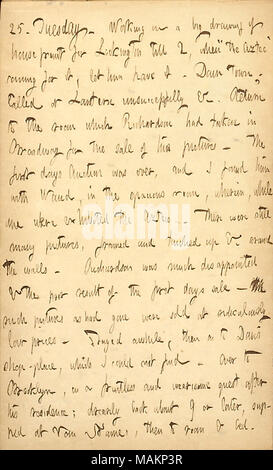 25. Tuesday. Working on a big drawing of
house front for Lockington till 2, when "the Aztec"
coming for it, let him have it. Down Town.
Called at Lantern unsuccessfully &c. Return
to the room which Richardson had taken in
Broadway for the sale of his pictures. The
first days Auction was over, and I found him
with Waud, in the spacious room,
were. There were still
many pictures, framed and tacked up & around
the walls. Richardson was much disappointed
the poor result of the first days sale.
such pictures as had gone were sold at ridiculously
low prices. Stayed awhile, then to Davis'
shop-place, which I could not find. Over to
Brooklyn, on a fruitless and wearisome quest after
his residence; drearily back about 9 or later, sup-
ped at, then to room & bed.
alamy
Image ID: MAKP3R
www.alamy.com